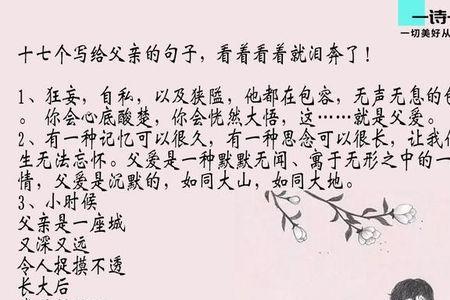 一诗一
一切美好从
十七个写给父亲的句子，看着看着就泪奔了！
1、狂妄，自私，以及狭隘，他都在包容，无声无息的包
。你会心底酸楚，你会恍然大悟，这……就是父爱。
2、有一种记忆可以很久，有一种思念可以很长，让我们
生无法忘怀。父爱是一种默默无闻、寓于无形之中的一
情，父爱是沉默的，如同大山，如同大地。
3、小时候
父亲是一座城
又深又远
令人捉摸不透
长大后